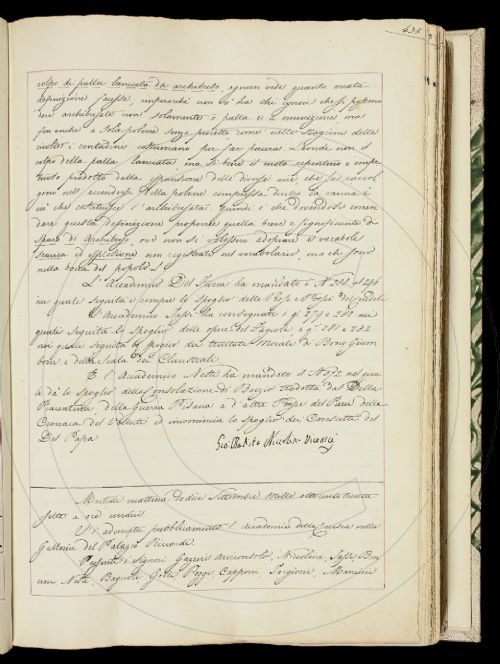 435
colpo di palla lanciata da archibuso, ognun vede quanto errata
definizione facesse, imperocchè non v'ha chi ignori che si possono
dare archibusate non solamente a palla e a munizione ma
fin anche a sola polvere senza proietto come nelle stagioni delle
i contadini costumano per far paura. Laonde non il
colpo della palla lanciata ma sì bene il moto repentino e impe
tuoso prodotto dalla espansione delle diverse arie che si svol
gono nell'accendersi della polvere compressa dentro la canna è
ciò che costituisce l'archibusata. Quindi è che dovendosi emen
dare questa definizione proporrei quella breve e significante di
Sparo di Archibuso, ove non si volessero adoprare i vocaboli
scarica ed esplosione non registrati nel vocabolario, ma che sono
nella bocca del popolo.
L'Accademico Del Furia ha mandato i N.i 238 al 246
in quali seguita e compie lo spoglio delle Prose
L'Accademico Sassi ha consegnati i q.i 279 e 280 nei
quali seguita lo spoglio delle opere del Fagiuoli e q.i 281 e 282
nei quali seguita lo spoglio dei trattati Morali di Bono Giam
boni e della Scala dei Claustrali.
E l'Accademico Nesti ha mandato il N. 372 nel qua
le dà lo spoglio della Consolazione di Boezio tradotta dal Della
Piacentina, della Guerra Pisana e d'altre Prose del Pucci della
Cronaca del Velluti ed incomincia lo spoglio dei Consulti del
Del Papa
Gio. Batista Niccolini
Martedì mattina dodici Settembre mille ottocento trenta
sette a ore undici
S'è adunata pubblicamente l'accademia della Crusca nella
Galleria del Palazzo Riccardi.
Presenti i Signori Gazzeri Arciconsolo, Niccolini, Sassi, Ben
cini, Nesti, Bagnoli, Giusti, Poggi, Capponi, Targioni, Mancini